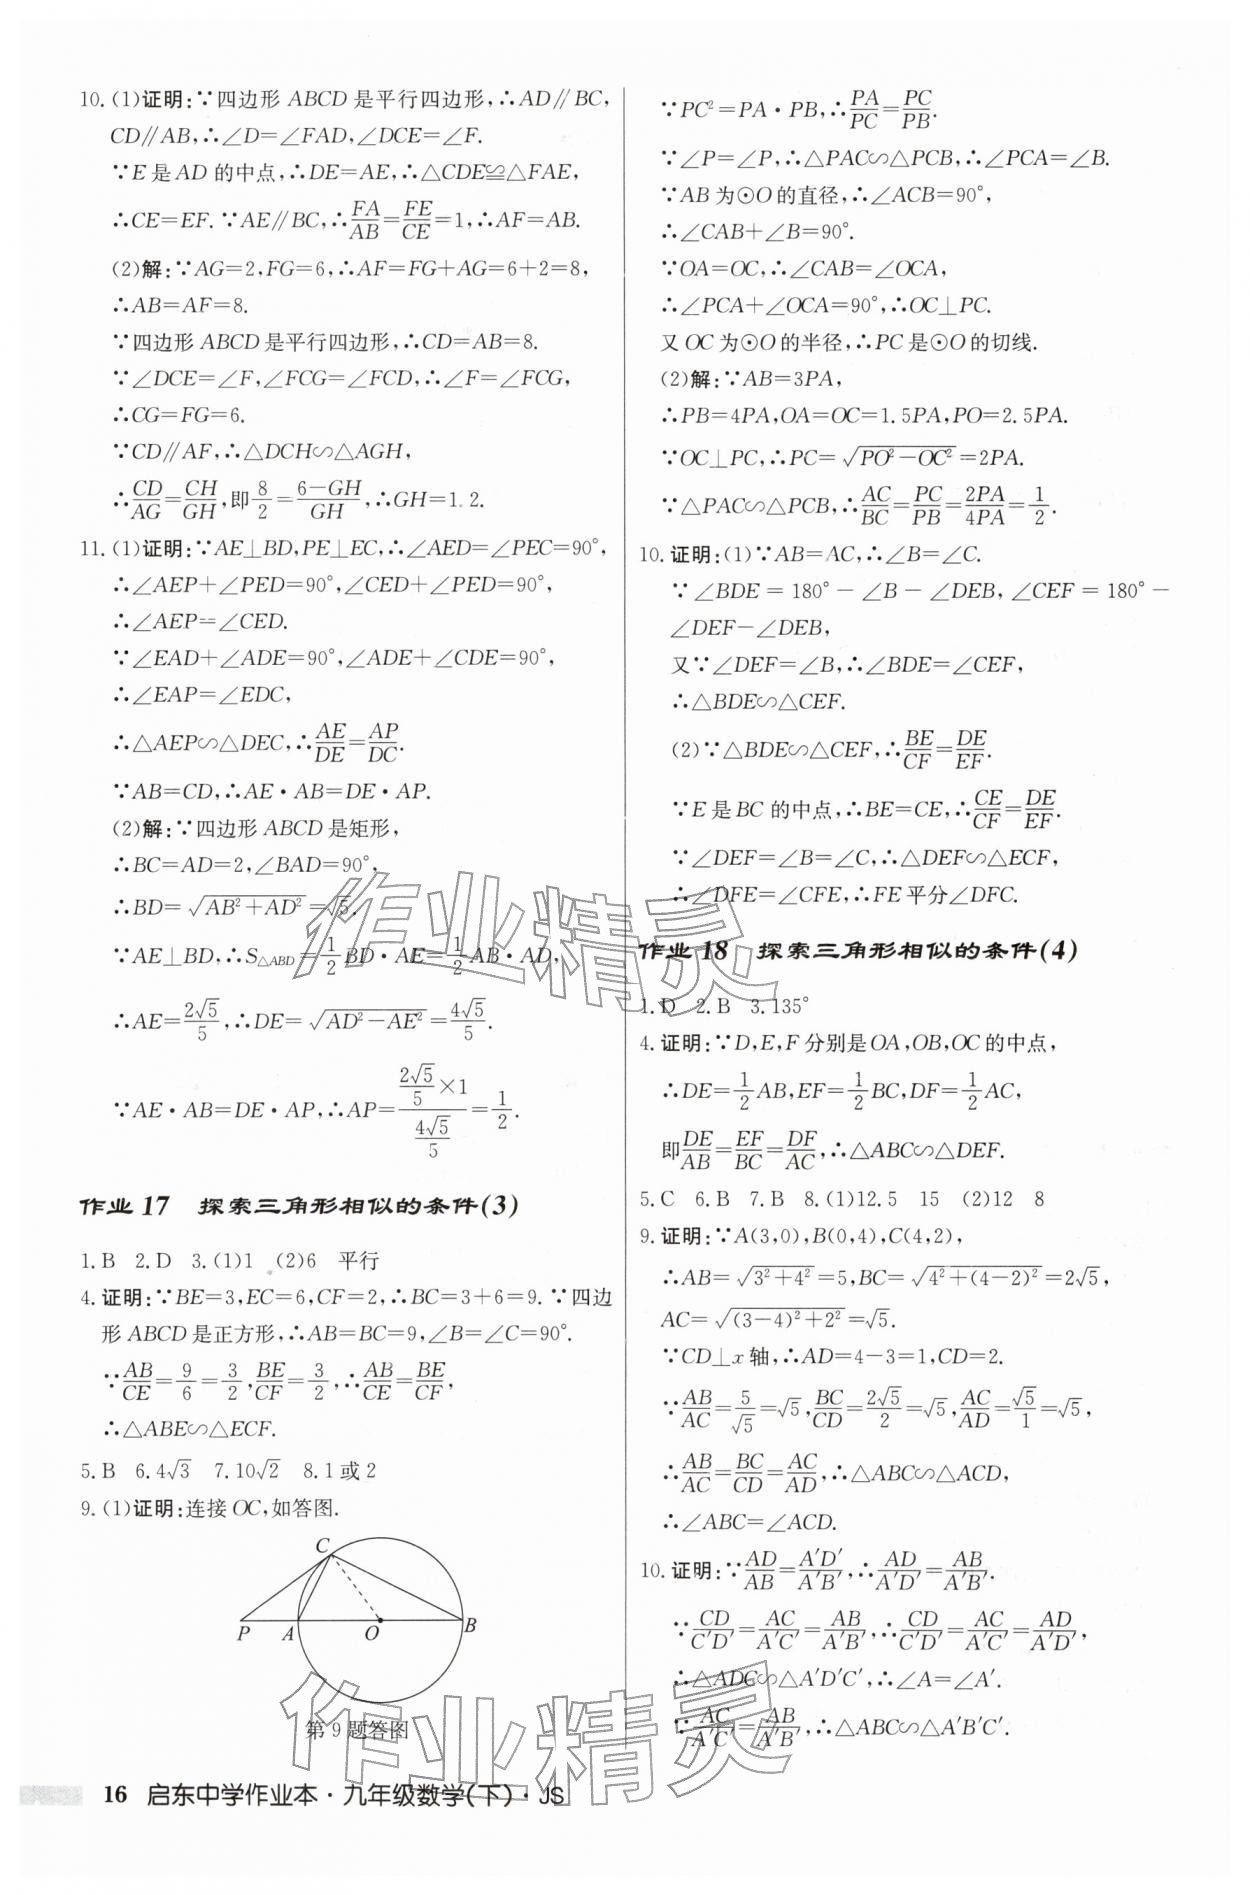 10. (1)证明:∵四边形 ABCD 是平行四边形,∴AD∥BC,
CD∥AB,∴∠D=∠FAD,∠DCE=∠F.
∵E是AD的中点,∴DE=AE,∴△CDE≌△FAE,
∴CE=EF.∵AE∥BC,∴FA/AB=FE/CE=1,∴AF=AB.
(2)解:∵AG=2,FG=6,∴AF=FG+AG=6+2=8,
∴AB=AF=8.
∵四边形ABCD是平行四边形,∴CD=AB=8.
∵∠DCE=∠F,∠FCG=∠FCD,∴∠F=∠FCG,
∴CG=FG=6.
∵CD∥AF,∴△DCH∽△AGH,
∴CD/AG=CH/GH,即8/2=(6-GH)/GH,∴GH=1.2.
11. (1)证明:∵AE⊥BD,PE⊥EC,∴∠AED=∠PEC=90°,
∴∠AEP+∠PED=90°,∠CED+∠PED=90°,
∴∠AEP=∠CED.
∵∠EAD+∠ADE=90°,∠ADE+∠CDE=90°,
∴∠EAP=∠EDC,
∴△AEP∽△DEC,∴AE/DE=AP/DC.
∵AB=CD,∴AE·AB=DE·AP.
(2)解:∵四边形ABCD是矩形,
∴BC=AD=2,∠BAD=90°,
∴BD=√(AB²+AD²)=√5.
∵AE⊥BD,∴S△ABD=1/2BD·AE=1/2AB·AD,
∴AE=2√5/5,∴DE=√(AD²-AE²)=4√5/5.
∵AE·AB=DE·AP,∴AP=(2√5/5×1)/(4√5/5)=1/2.
作业17 探索三角形相似的条件(3)
1.B 2.D 3.(1)1 (2)6 平行
4.证明:∵BE=3,EC=6,CF=2,∴BC=3+6=9.∵四边
形ABCD是正方形,∴AB=BC=9,∠B=∠C=90°.
∵AB/CE=9/6=3/2,BE/CF=3/2,∴AB/CE=BE/CF,
∴△ABE∽△ECF.
5.B 6.4√3 7.10√2 8.1或2
9.(1)证明:连接OC,如答图.
C
P A O B
第9题答图
∵PC²=PA·PB,∴PA/PC=PC/PB.
∵∠P=∠P,∴△PAC∽△PCB,∴∠PCA=∠B.
∵AB为⊙O的直径,∴∠ACB=90°,
∴∠CAB+∠B=90°.
∵OA=OC,∴∠CAB=∠OCA,
∴∠PCA+∠OCA=90°,∴OC⊥PC.
又OC为⊙O的半径,∴PC是⊙O的切线.
(2)解:∵AB=3PA,
∴PB=4PA,OA=OC=1.5PA,PO=2.5PA.
∵OC⊥PC,∴PC=√(PO²-OC²)=2PA.
∵△PAC∽△PCB,∴AC/BC=PC/PB=2PA/4PA=1/2.
10.证明:(1)∵AB=AC,∴∠B=∠C.
∵∠BDE=180°-∠B-∠DEB,∠CEF=180°-
∠DEF-∠DEB,
又∵∠DEF=∠B,∴∠BDE=∠CEF,
∴△BDE∽△CEF.
(2)∵△BDE∽△CEF,∴BE/CF=DE/EF.
∵E是BC的中点,∴BE=CE,∴CE/CF=DE/EF.
∵∠DEF=∠B=∠C,∴△DEF∽△ECF,
∴∠DFE=∠CFE,∴FE平分∠DFC.
作业18 探索三角形相似的条件(4)
1.D 2.B 3.135°
4.证明:∵D,E,F分别是OA,OB,OC的中点,
∴DE=1/2AB,EF=1/2BC,DF=1/2AC,
即DE/AB=EF/BC=DF/AC,∴△ABC∽△DEF.
5.C 6.B 7.B 8.(1)12.5 15 (2)12 8
9.证明:∵A(3,0),B(0,4),C(4,2),
∴AB=√(3²+4²)=5,BC=√(4²+(4-2)²)=2√5,
AC=√((3-4)²+2²)=√5.
∵CD⊥x轴,∴AD=4-3=1,CD=2.
∵AB/AC=5/√5=√5,BC/CD=2√5/2=√5,AC/AD=√5/1=√5,
∴AB/AC=BC/CD=AC/AD,∴△ABC∽△ACD,
∴∠ABC=∠ACD.
10.证明:∵AD/AB=A′D′/A′B′,∴AD/A′D′=AB/A′B′.
∵CD/C′D′=AC/A′C′=AB/A′B′,∴CD/C′D′=AC/A′C′=AD/A′D′,
∴△ADC∽△A′D′C′,∴∠A=∠A′.
∵AC/A′C′=AB/A′B′,∴△ABC∽△A′B′C′.
16 启东中学作业本·九年级数学(下)·JS
作业精灵
作业精灵